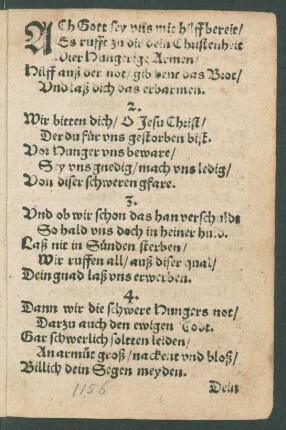 ACh Gott sey vns mit hilff bereit/
Es rufft zu dir dein Christenheit
Wier Hungerige Armen/
Hilff auß der not/ gib vens das Brot/
Vnd laß dich das erbarmen.
2.
Wir bitten dich/ O Jesu Christ/
Der du für vns gestorben bist.
Vor Hunger vns beware/
Sey vns gnedig/ mach vns ledig/
Von diser schweren gfare.
3.
Vnd ob wir schon das han verschuldt
So hald vns doch in deiner huld.
Laß nit in Sünden sterben/
Wir ruffen all/ auß diser qual/
Dein gnad laß vns erwerben.
4.
Dann wir die schwere Hungers not/
Darzu auch den ewigen Todt.
Gar schwerlich soltten leiden/
An armůt groß/ nackent vnd bloß/
Billich dein Segen meyden.
1156
Dein